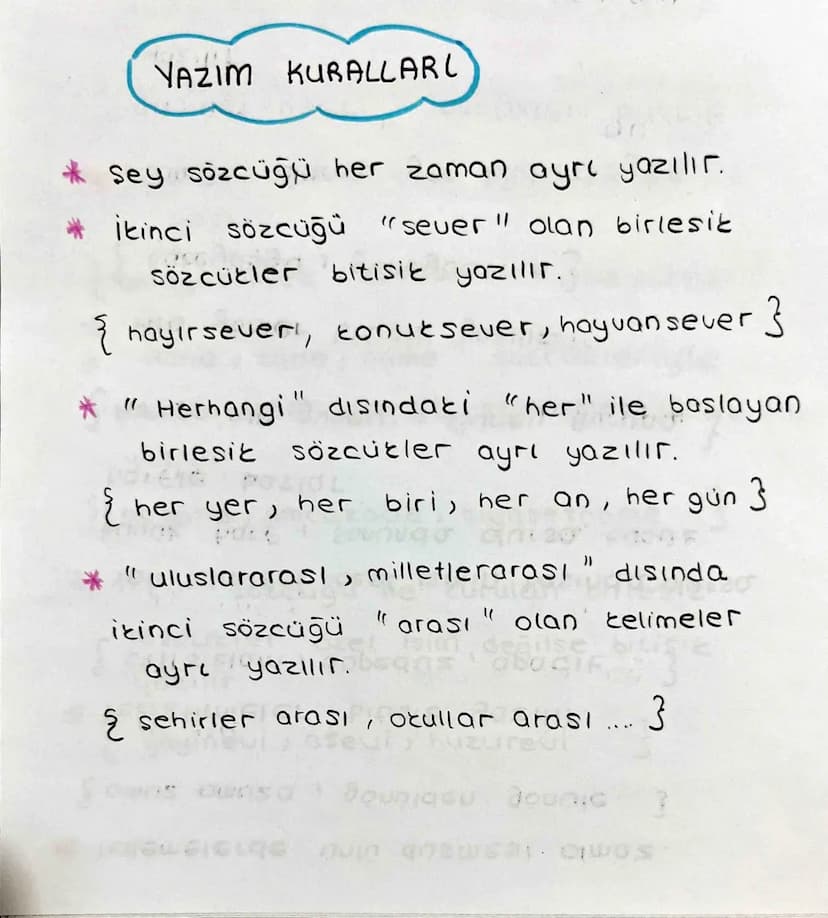 YAZIM KURALLARI
* şey sözcüğü her zaman ayrı yazılır.
* İkinci sözcüğü "sever" olan birleşik
sözcükler bitişik yazılır.
{ hayırsever, konuksever, hayvansever }
* "Herhangi" dışındaki "her" ile başlayan
birleşik sözcükler ayrı yazılır.
{ her yer, her biri, her an, her gün }
* "uluslararası, milletlerarası" dışında
ikinci sözcüğü "arası" olan kelimeler
ayrı yazılır.
{ şehirler arası, okullar arası .... }